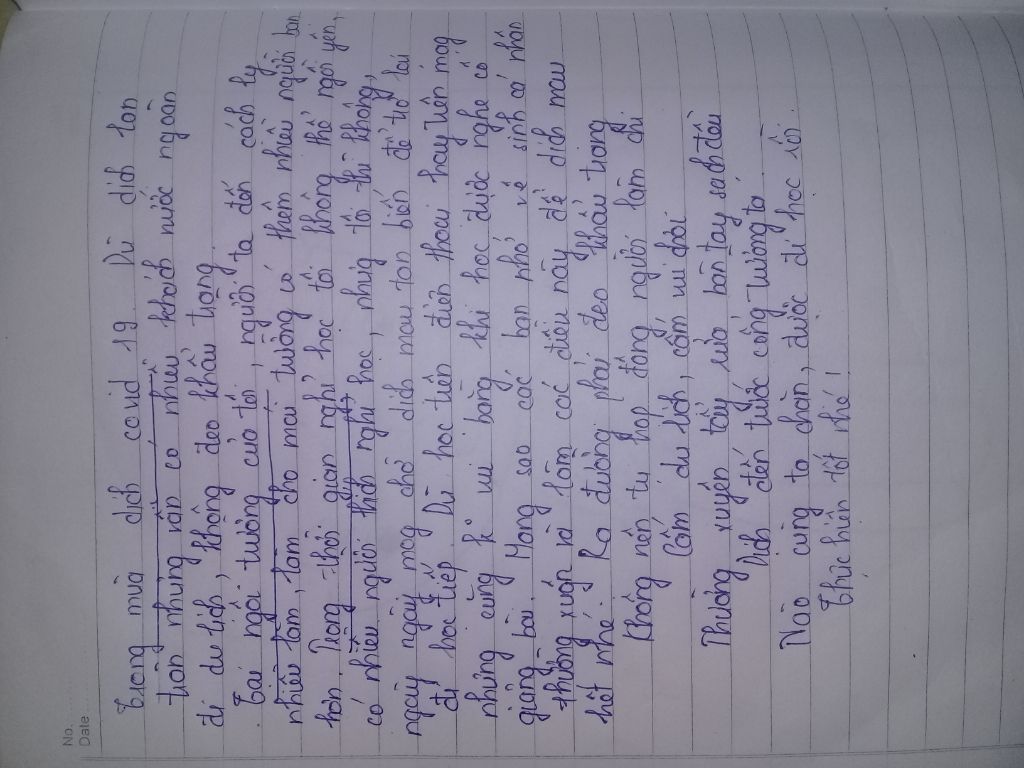 No.
Date
Trong mùa dịch covid 19. Dù dịch lan
tràn nhưng vẫn có nhiều khách nước ngoài
đi du lịch, không đeo khẩu trang
Tại ngôi trường của tôi, người ta đến cách ly
nhiều lắm, làm cho mái trường có thêm nhiều người bạn
hơn. Trong thời gian nghỉ học tôi không thể ngồi yên,
có nhiều người thích nghỉ học, nhưg tôi thì không,
ngày ngày mog chờ dịch mau tan biến để trở lại
đi học tiếp. Dù học trên điện thoại hay trên mạg
nhưng cũng k vui bằng khi học được nghe cô
giảng bài. Mong sao các bạn nhỏ vệ sinh cá nhân
thường xuyên và làm các điều này để dịch mau
hết nhé. Ra đường phải đeo khẩu trang
Không nên tụ họp đông người làm chi
Cấm du lịch, cấm vui chơi
Thường xuyên tẩy rửa bàn tay sạch đều
Dịch đến trước cổng trường ta
Nào cùng ta chặn, được đi học rồi.
Thực hiện tốt nhé!